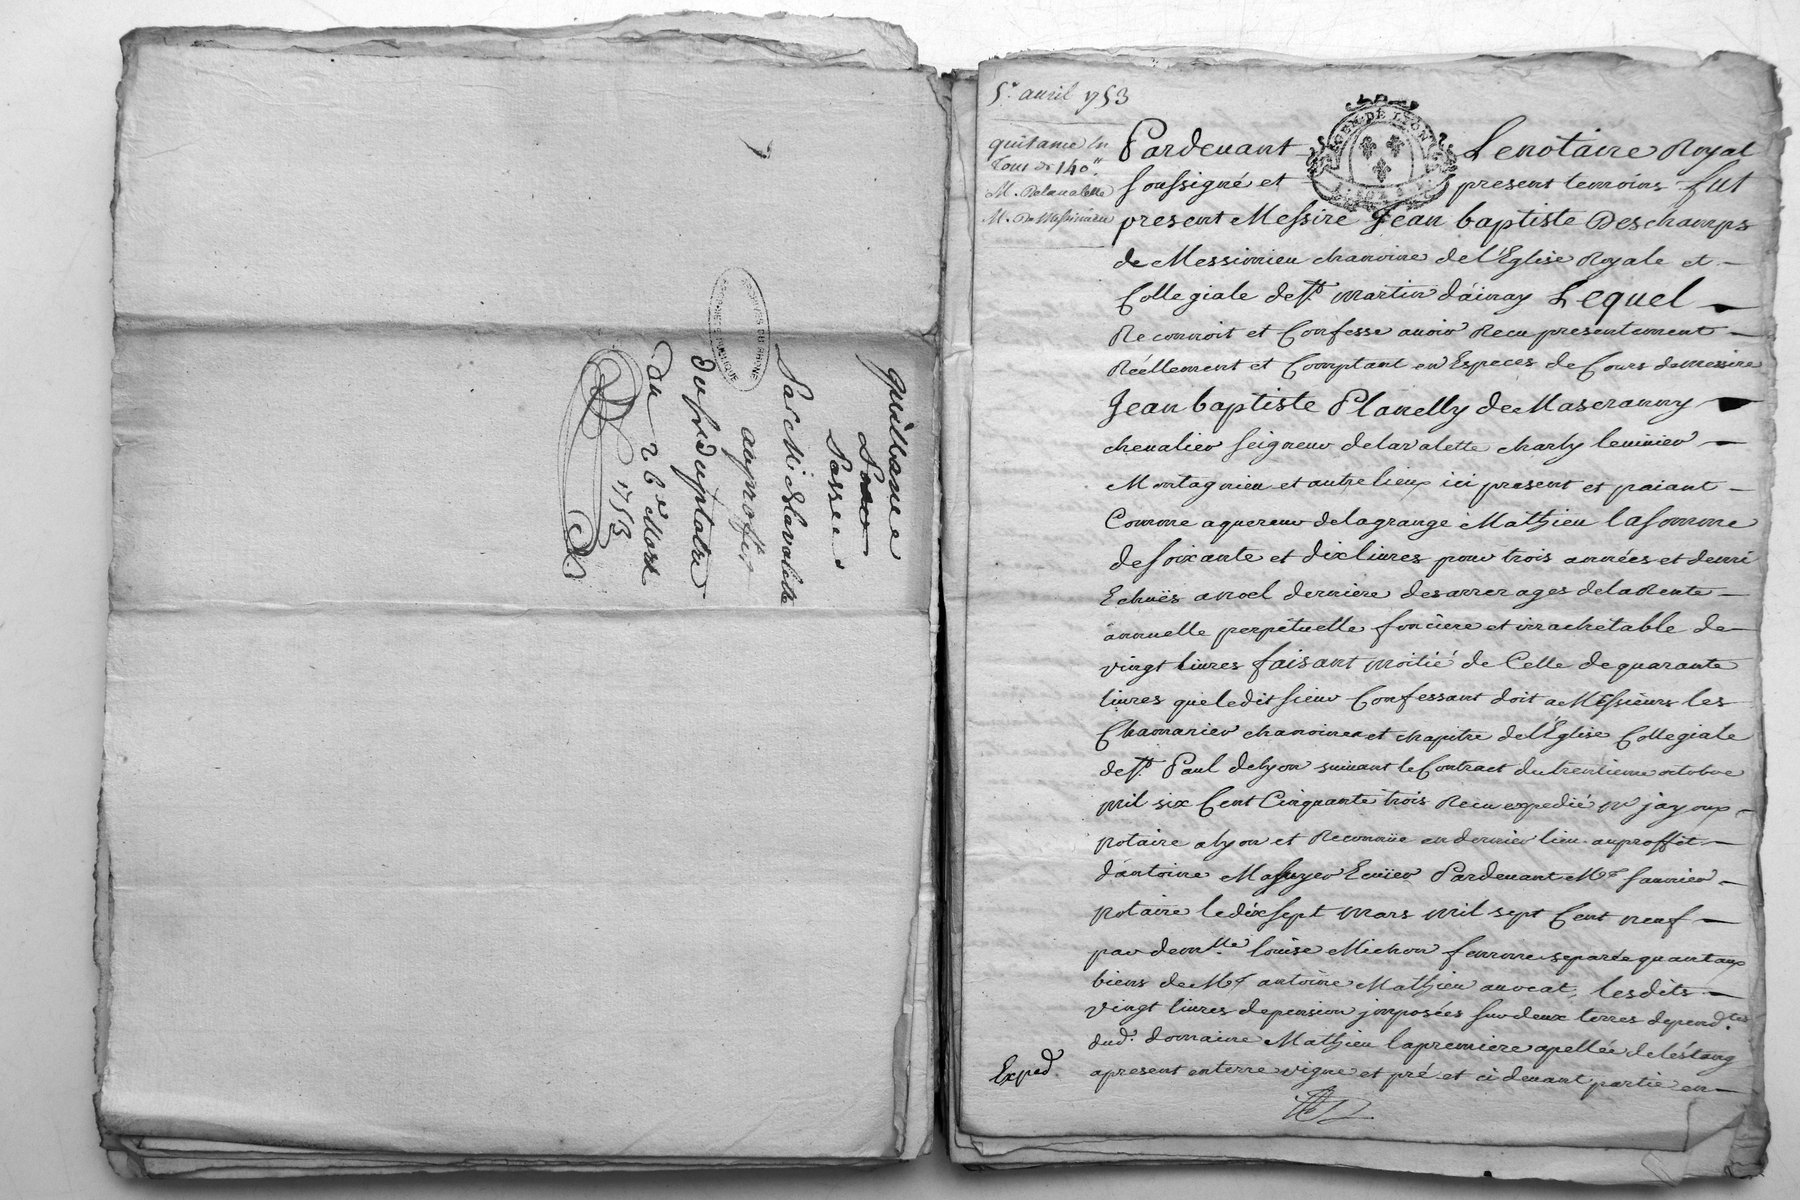 quittance
Passée
Par Mr Delavalette
au proffit
du sr duplatre
du 26e Mars
1753
ARCHIVES DU RHONE
5e. auril 1753
quitance en
Tour de 140"
M. Delaualette
M. De Messimieu
GEN. DE LYON
Pardeuant Lenotaire Royal
soussigné et present temoins fut
present Messire Jean baptiste Deschamps
de Messimieu chanoine de l'Eglise Royale et
Collegiale de st. martin d'ainay Lequel
Reconnoit et Confesse auoir Recu presentement
Réellement et Comptant en Especes de Cours de messire
Jean baptiste Planelly de Maseranny
cheualier seigneur delavalette charly leuinier
Montagnieu et autre lieux ici present et paiant
Comme aquereur delagrange Mathieu lasomme
de soixante et dix liures pour trois années et demi
Echuës a noel derniere des arrerages dela Rente
annuelle perpétuelle fonciere et irrachetable de
vingt liures faisant moitié de Celle de quarante
liures que ledit sieur Confessant doit a Messieurs les
Chamarier chanoines et chapitre de l'Eglise Collegiale
de st. Paul delyon suiuant le Contract du trentieme octobre
mil six Cent Cinquante trois Recu expedié Me jayoux
Notaire a lyon et Reconnüe en dernier lieu au proffit
d'antoine Masuyer Ecuier Pardeuant Me. saunier
Notaire le dix sept mars mil sept Cent neuf
par demlle. loüise Michon femme separée quant aux
biens de Me antoine Mathieu auocat, les dits
vingt liures de pension jmposées sur deux terres depend.tes
dud. domaine Mathieu la premiere apellée de l'éstang
Exped. a present en terre vigne et pré et ci deuant partie en